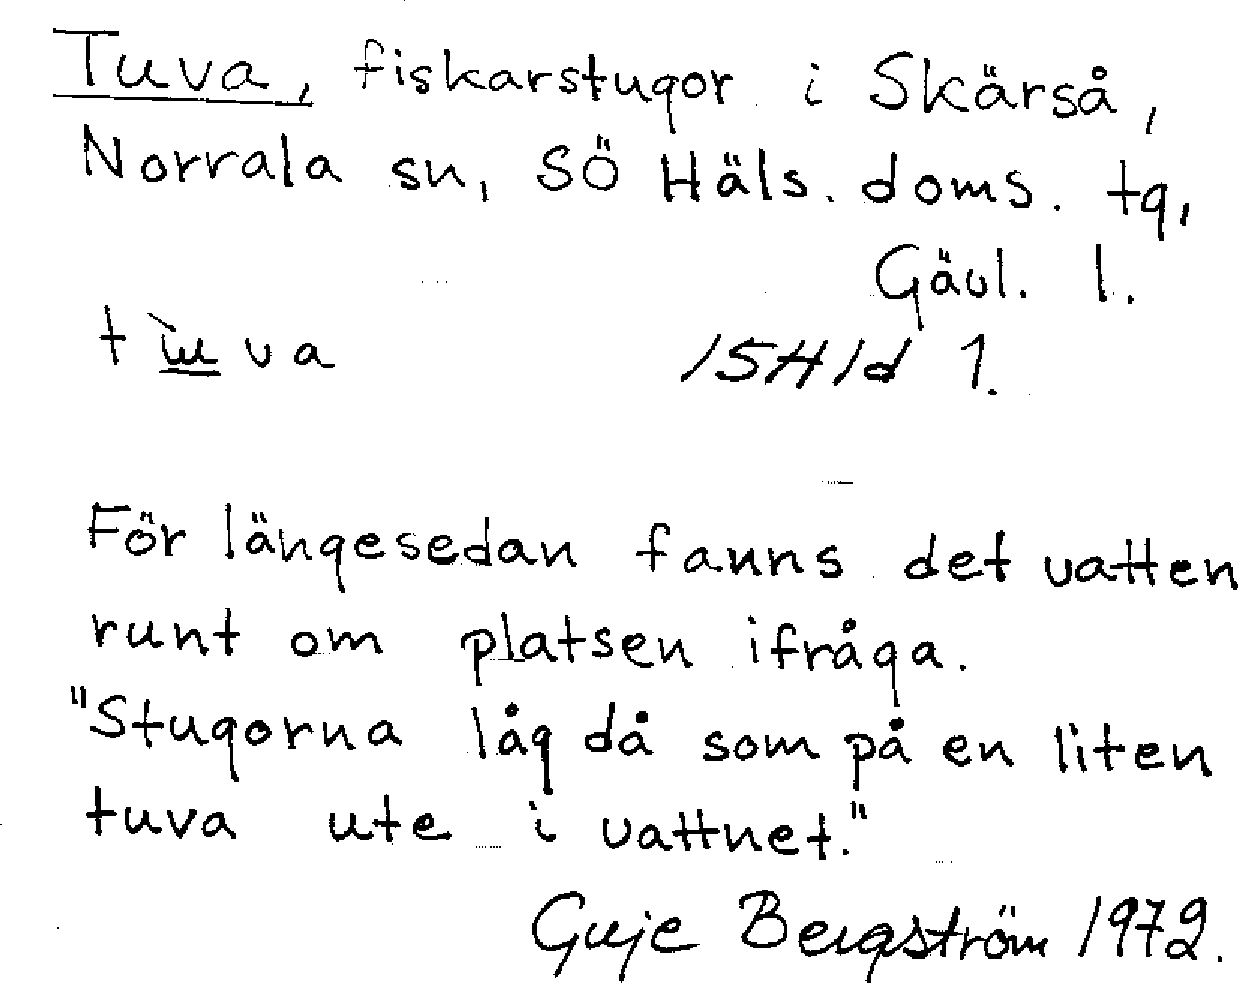 Tuva, fiskarstugor i Skärså,
Norrala sn, SÖ Häls. doms. tg,
Gävl. l.
tɯ̈̀va 15H1d 1.
För längesedan fanns det vatten
runt om platsen ifråga.
"Stugorna låg då som på en liten
tuva ute i vattnet."
Guje Bergström 1972.